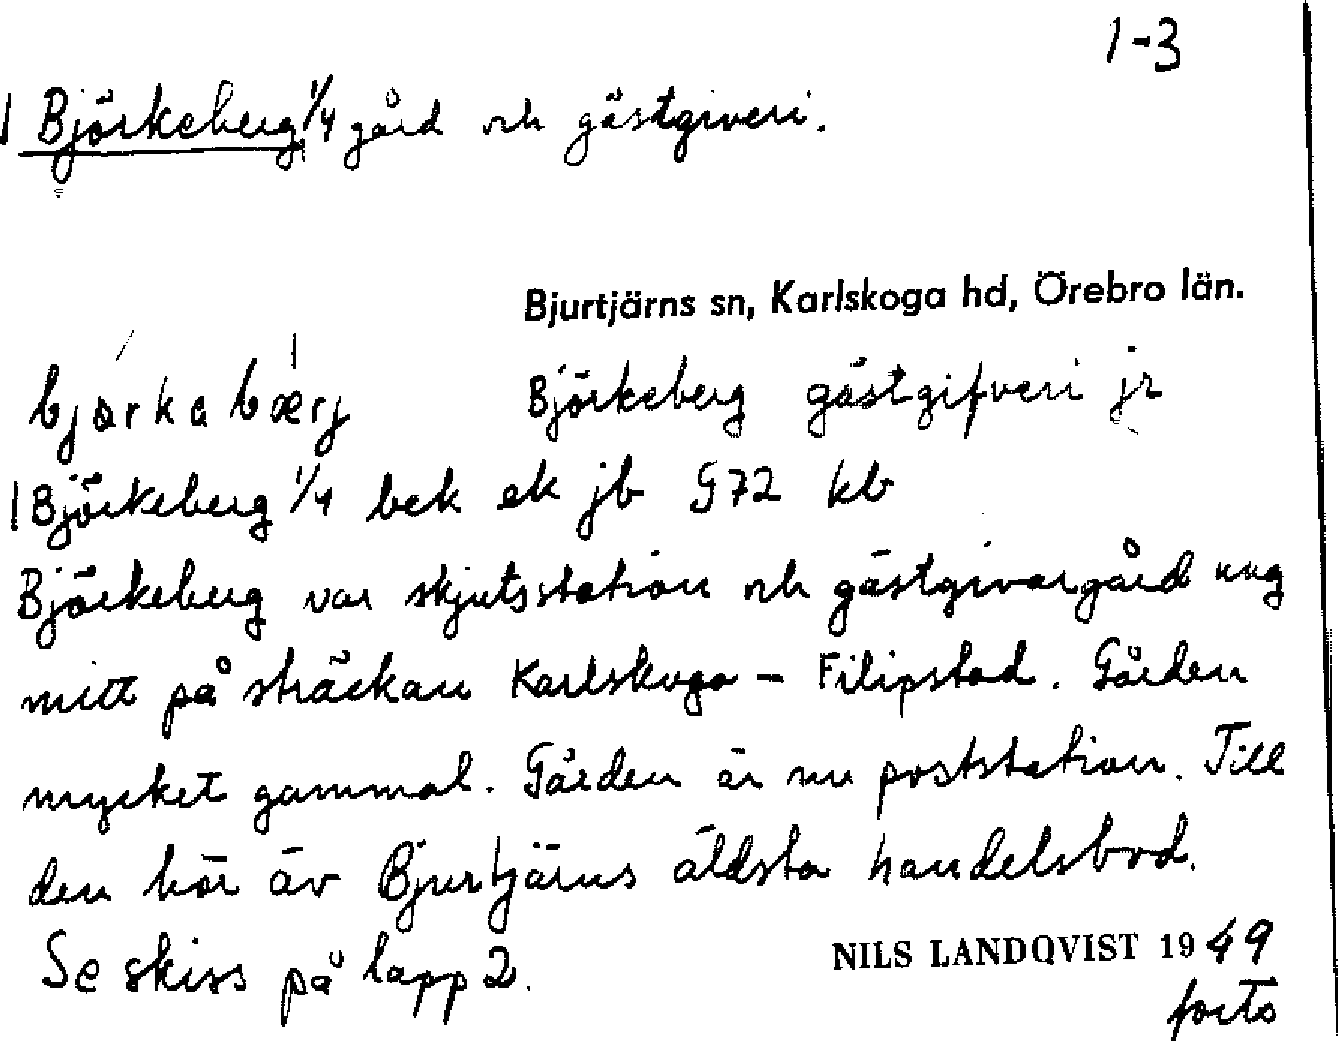 1-3
Björkeberg 1/4 gård och gästgiveri.
Bjurtjärns sn, Karlskoga hd, Örebro län.
bjərkabærj Björkeberg gästgifveri jr
Björkeberg 1/4 bek ek jb G72 kb
Björkeberg var skjutsstation och gästgivargård ung
mitt på sträckan Karlskoga – Filipstad. Gården
mycket gammal. Gården är nu poststation. Till
den hör äv Bjurtjärns äldsta handelsbod.
Se skiss på lapp 2.
NILS LANDQVIST 1949
forts